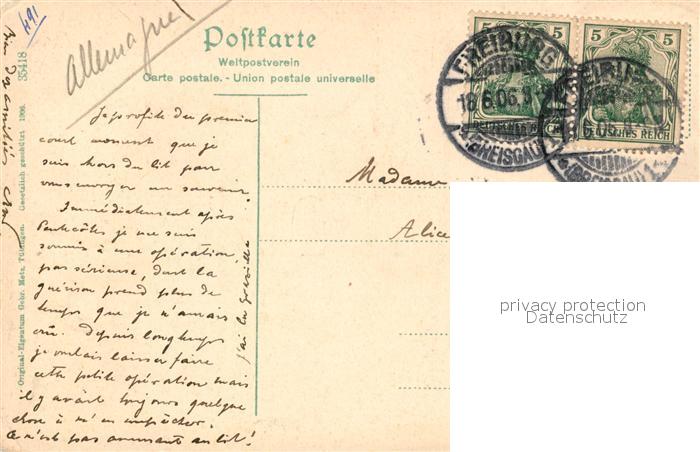 491
Allemagne
Postkarte
Weltpostverein
Carte postale. - Union postale universelle
5 5
5 5
FREIBURG
18.6.06.
(BREISGAU) 1
DEUTSCHES REICH
DEUTSCHES REICH
(BREISGAU) 1
Je profite du premier
court moment que je
suis hors du lit pour
vous envoyer un souvenir.
Immédiatement après
Pentecôtes je me suis
soumis à une opération,
pas sérieuse, dont la
guérison prend plus de
temps que je n'aurais
crû. Depuis longtemps
je voulais laisser faire
cette petite opération mais
il y avait toujours quelque
chose à m'en empêcher.
Ce n'est pas amusant au lit!
Bien des amitiés
Madame
Alice
35418
Original-Eigentum Gebr. Metz, Tübingen. Gesetzlich geschützt 1906.
privacy protection
Datenschutz